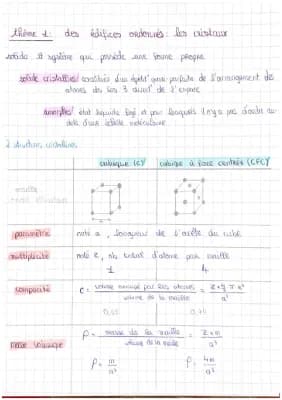 thème 1: des édifices ordonnés: les cristaux
solide = système qui possède une forme propre
solide cristallin: constitué d'un répétit° quasi parfaite de l'arrangement des
atomes ds les 3 direct° de l'espace
amorphe: état liquide figé et pour lesquels il n'y a pas d'ordre au
delà d'une échelle moléculaire.
2 structures cristallines
cubique (C)
cubique à face centrée (CFC)
maille
paramètre
noté a, longueur de l'arête du cube
multiplicité
noté z, nb total d'atome par maille
1
4
compacité
C = volume occupé par les atomes / volume de la maille = z × 4/3 π r³ / a³
0,52
0,74
masse volumique
ρ = masse de la maille / volume de la maille = z × m / a³
ρ = m / a³
ρ = 4m / a³